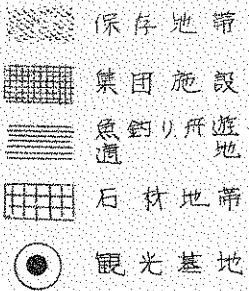 保存地帯
集団施設
魚釣り舟遊
適地
石材地帯
観光基地